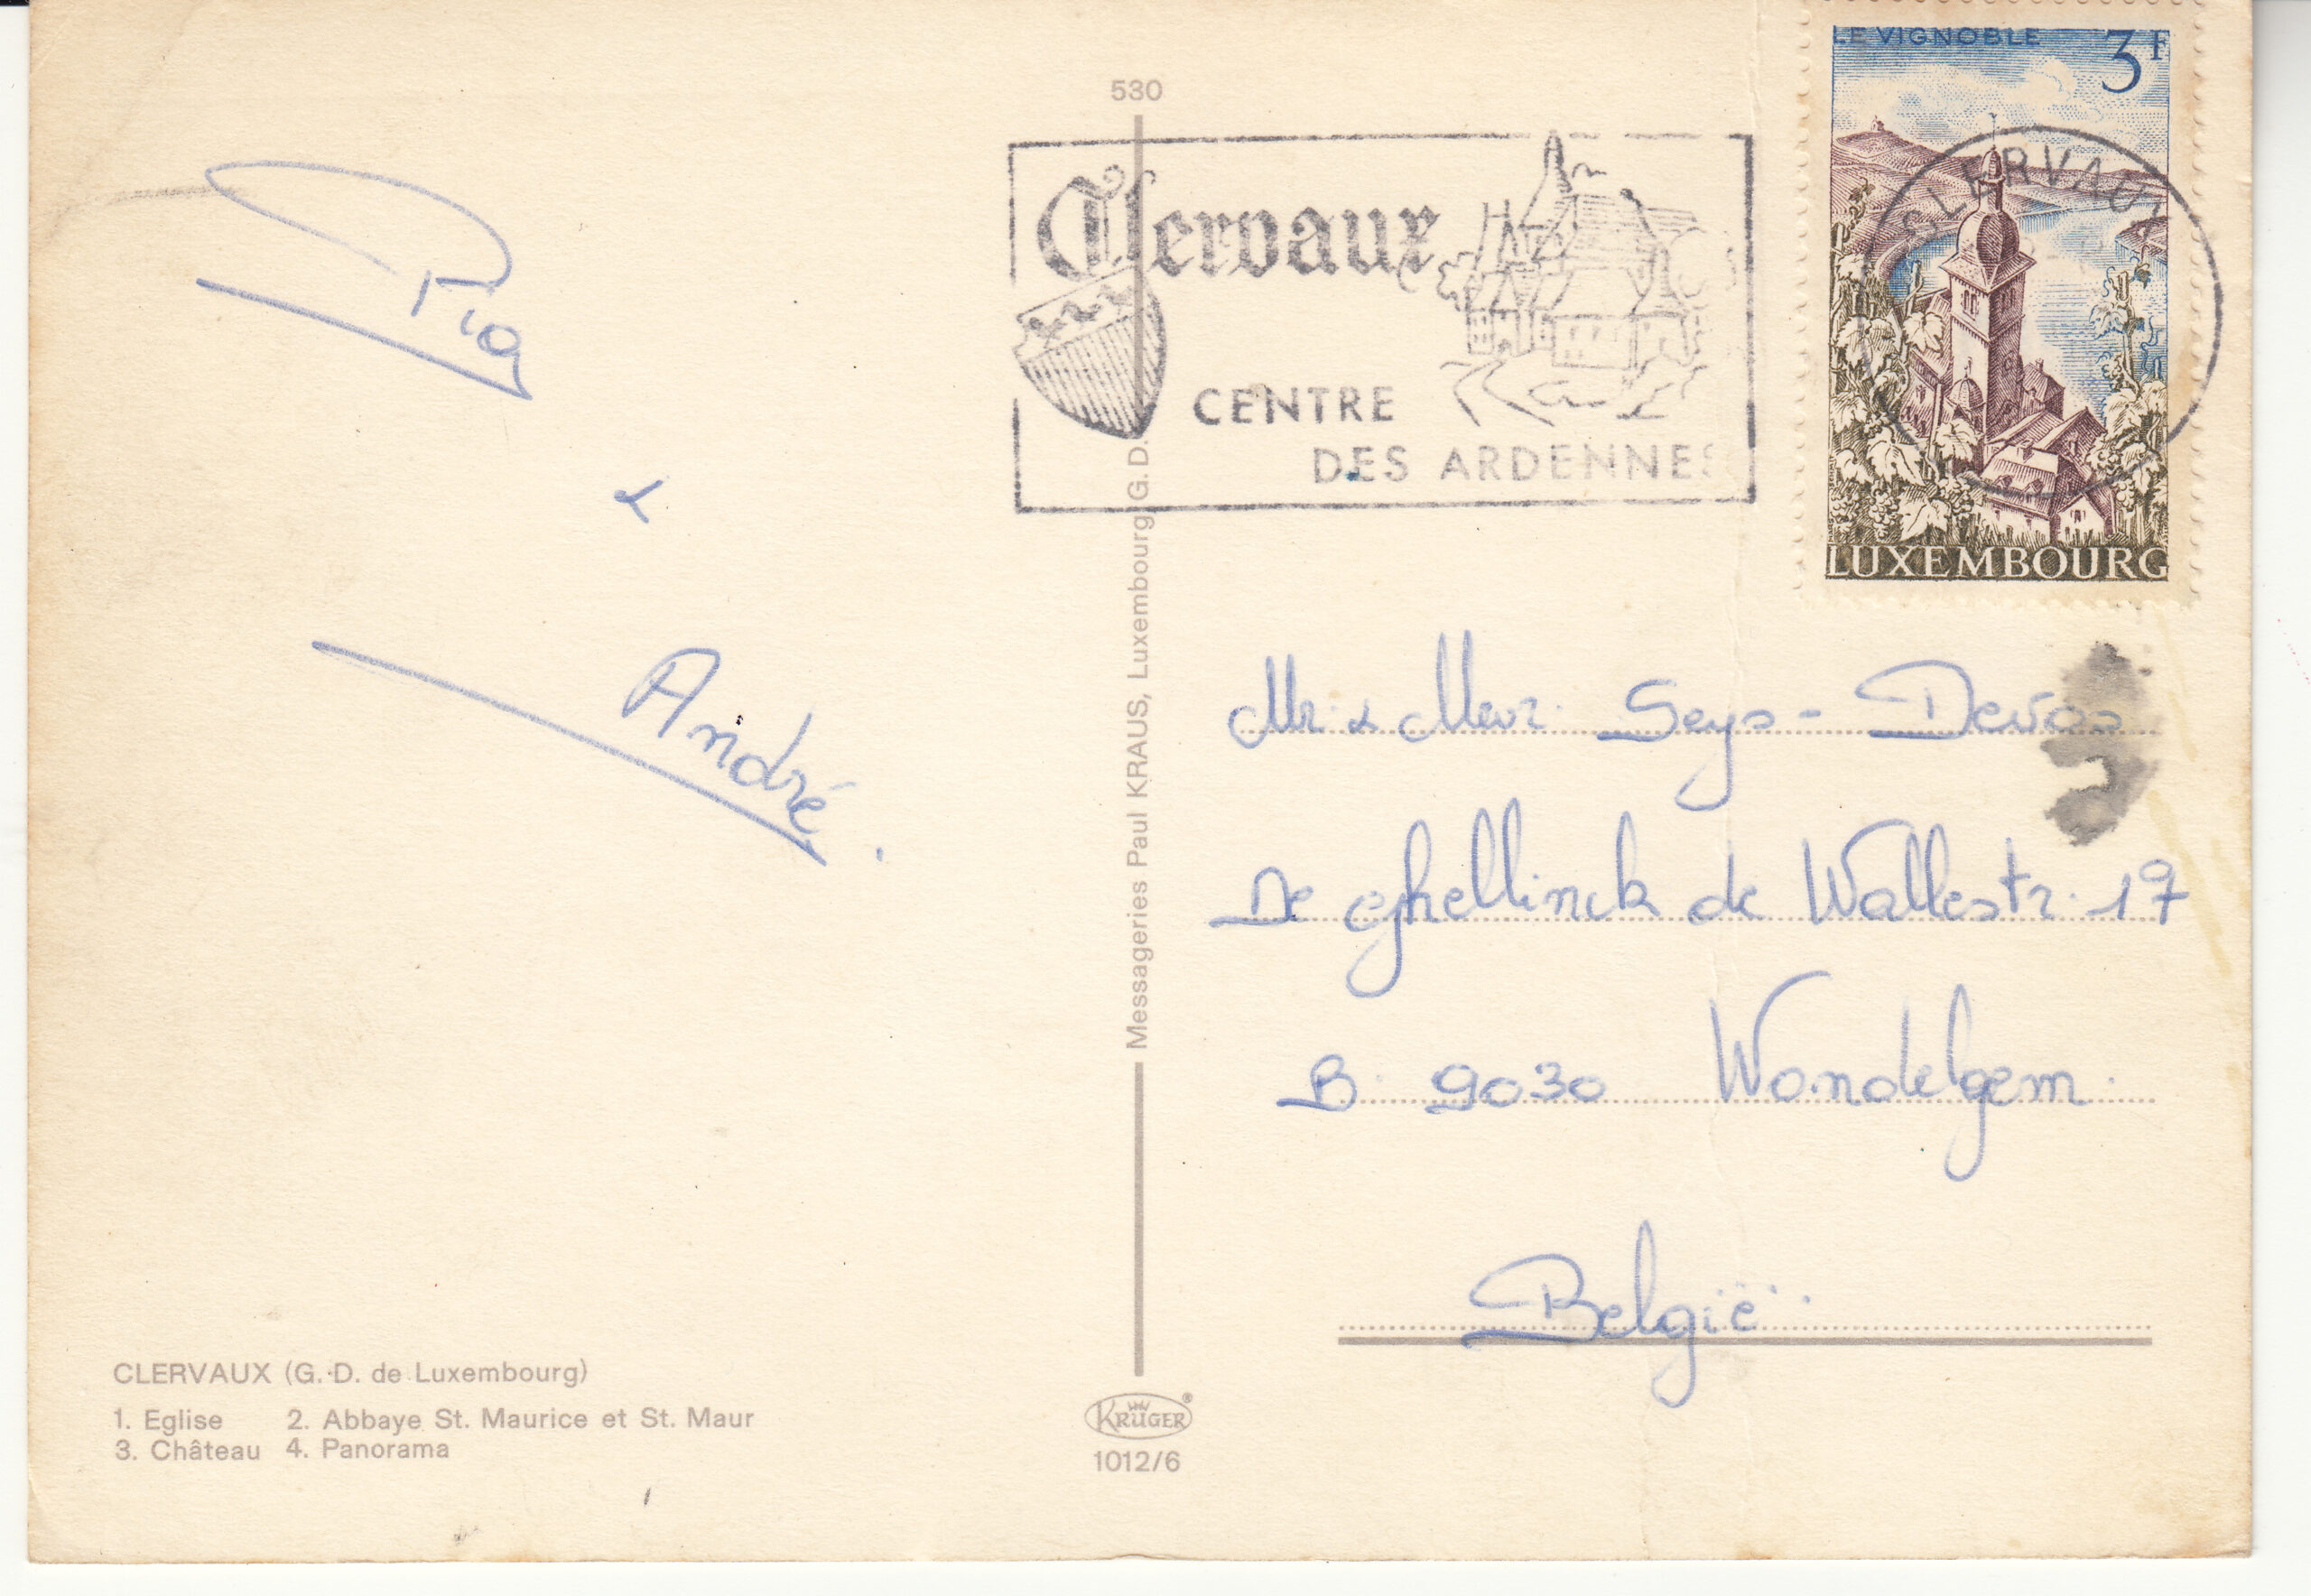 530
LE VIGNOBLE 3F
CLERVAUX
LUXEMBOURG
Clervaux
CENTRE
DES ARDENNES
Pia
&
André.
Mr. & Mevr. Seys - Devos
De Ghellinck de Wallestr. 17
B. 9030 Wondelgem.
België
Messageries Paul KRAUS, Luxembourg G.D.
CLERVAUX (G.-D. de Luxembourg)
1. Eglise 2. Abbaye St. Maurice et St. Maur
3. Château 4. Panorama
KRÜGER®
1012/6